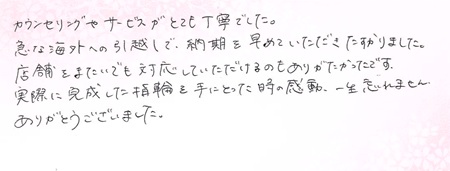 カウンセリングやサービスがとても丁寧でした。
急な海外への引越しで、納期を早めていただきたすかりました。
店舗をまたいでも対応していただけるのもありがたかったです。
実際に完成した指輪を手にとった時の感動、一生忘れません
ありがとうございました。